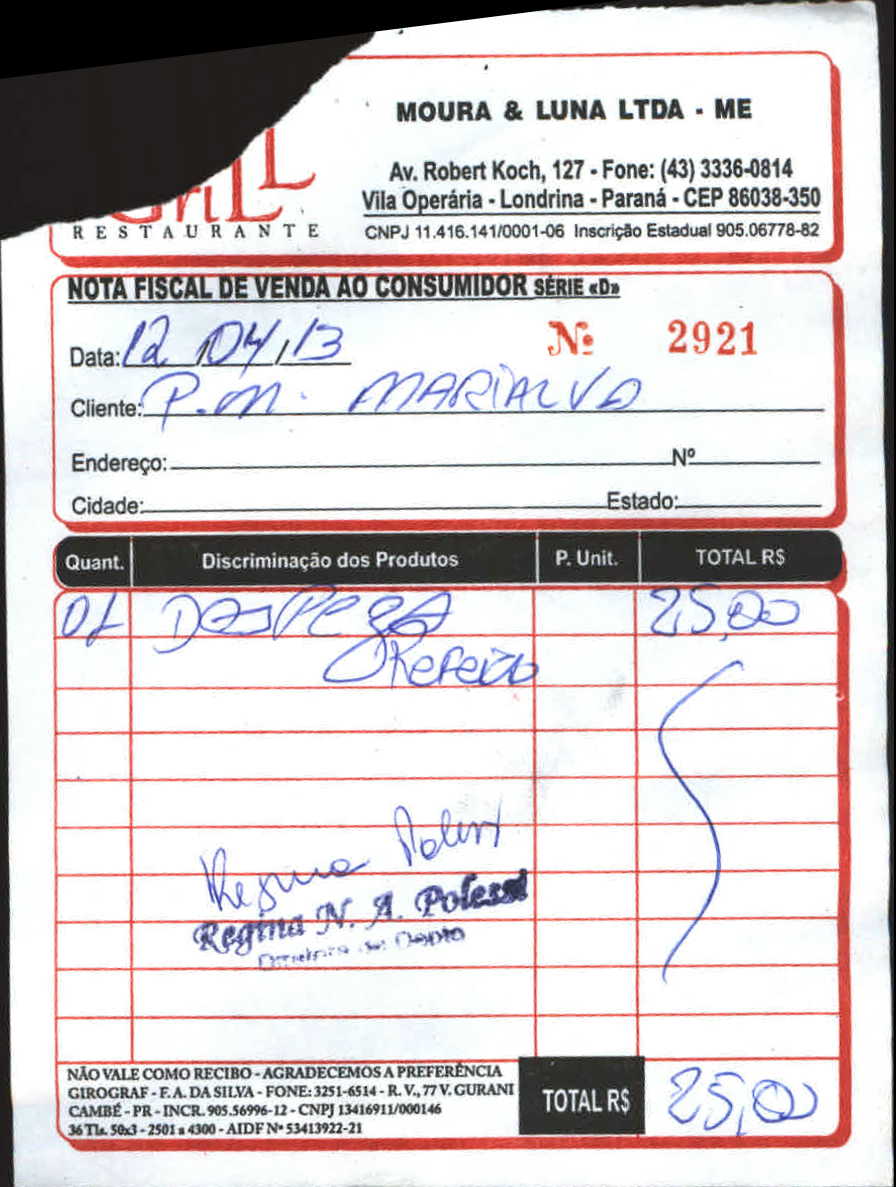 MOURA & LUNA LTDA - ME
Av. Robert Koch, 127 - Fone: (43) 3336-0814
Vila Operária - Londrina - Paraná - CEP 86038-350
CNPJ 11.416.141/0001-06 Inscrição Estadual 905.06778-82
GrilL
RESTAURANTE
NOTA FISCAL DE VENDA AO CONSUMIDOR SÉRIE «D»
Data: 12/04/13 Nº 2921
Cliente: P.M. MARIALVA
Endereço: Nº
Cidade: Estado:
Quant. Discriminação dos Produtos P. Unit. TOTAL R$
01 Despesa 25,00
Refeição
Regina Polessi
Regina N. A. Polessi
NÃO VALE COMO RECIBO - AGRADECEMOS A PREFERÊNCIA
GIROGRAF - F. A. DA SILVA - FONE: 3251-6514 - R. V., 77 V. GURANI
CAMBÉ - PR - INCR. 905.56996-12 - CNPJ 13416911/000146
36 Tls. 50x3 - 2501 a 4300 - AIDF Nº 53413922-21
TOTAL R$ 25,00